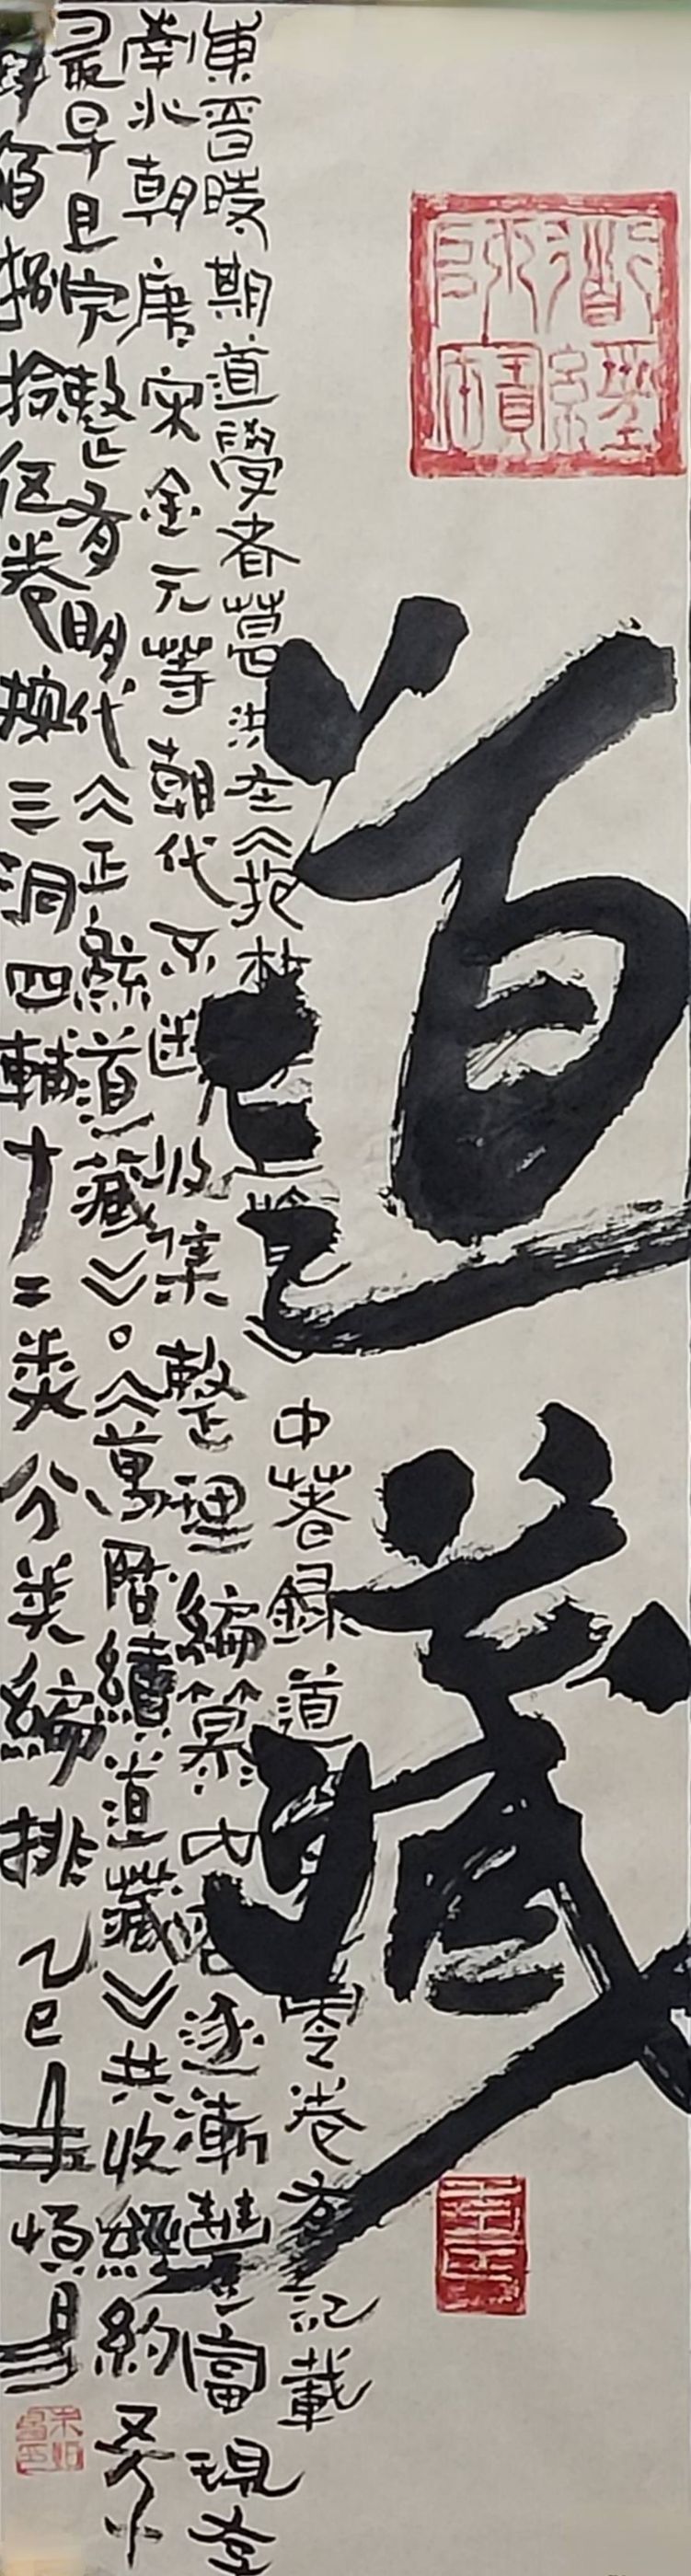 道藏
東晉時期道學者葛洪在《抱朴 》中著録道 零卷有記載
南北朝唐宋金元等朝代不迭收集整理編纂内容逐漸豐富現存
最早且完整有明代《正統道藏》。《萬曆續道藏》共收經約五仟
肆佰捌拾伍卷按三洞四輔十二类分类編排乙巳年恒易